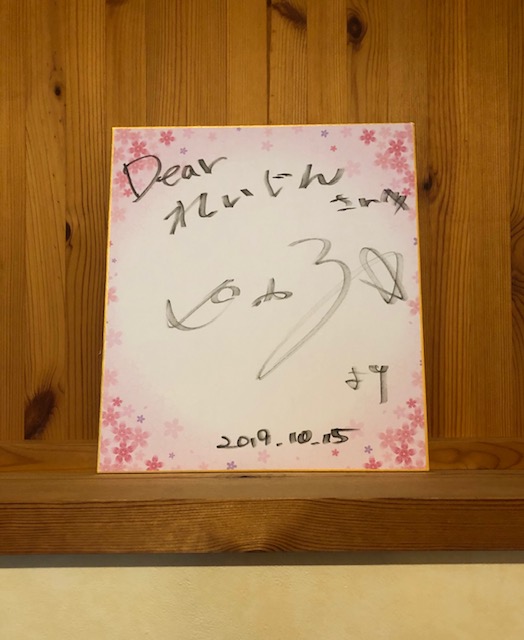 Dear
れいじん さん
より
2019.10.15